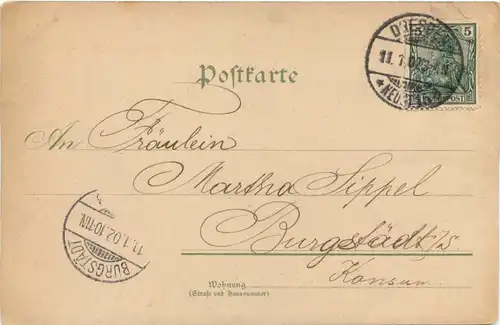 Postkarte
5
DRESDEN
11.1.02
NEUST.
An Fräulein
Martha Sippel
Burgstädt i/s.
Konsum.
BURGSTÄDT
11.1.02.10-11N.
Wohnung
(Straße und Hausnummer)